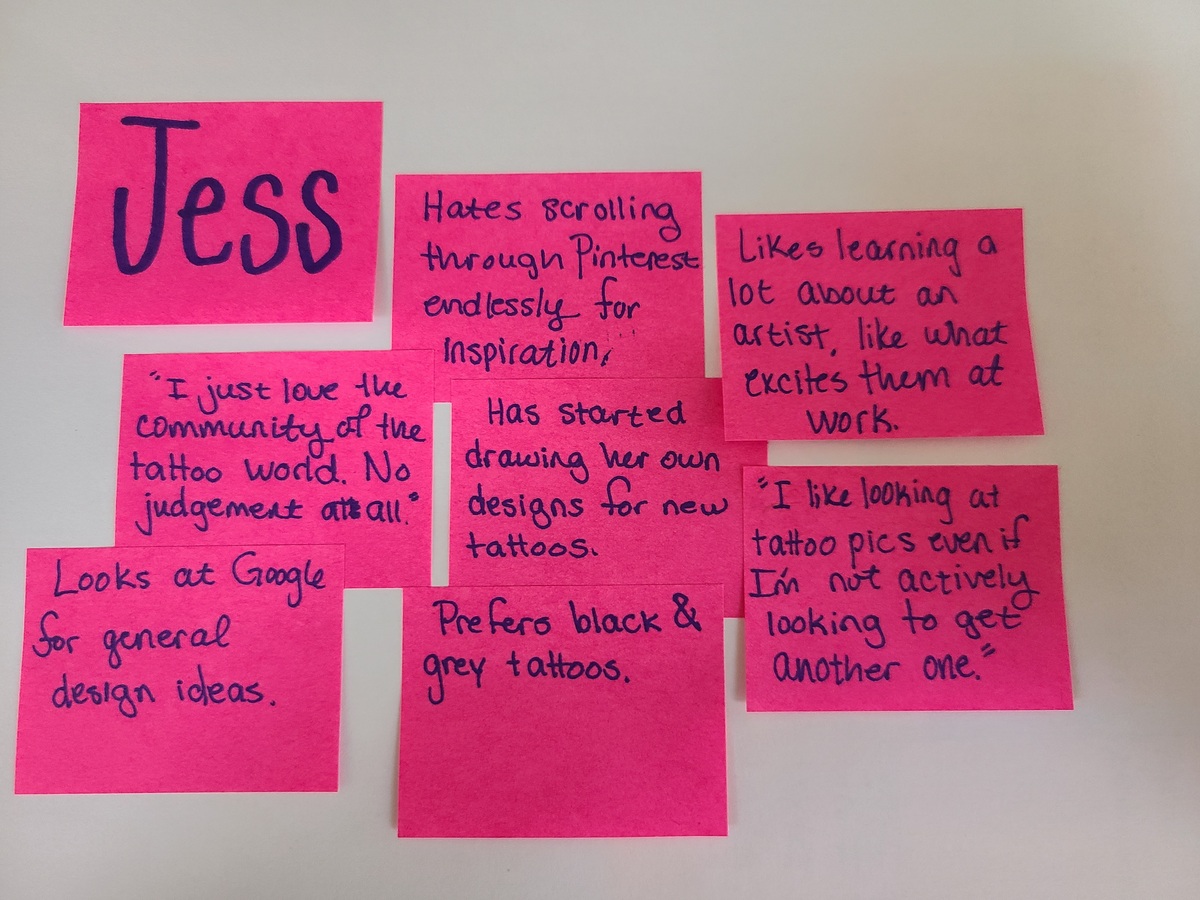 Jess
Hates scrolling
through Pinterest
endlessly for
inspiration.
Likes learning a
lot about an
artist, like what
excites them at
work.
"I just love the
community of the
tattoo world. No
judgement at all."
Has started
drawing her own
designs for new
tattoos.
"I like looking at
tattoo pics even if
I'm not actively
looking to get
another one."
Looks at Google
for general
design ideas.
Prefers black &
grey tattoos.